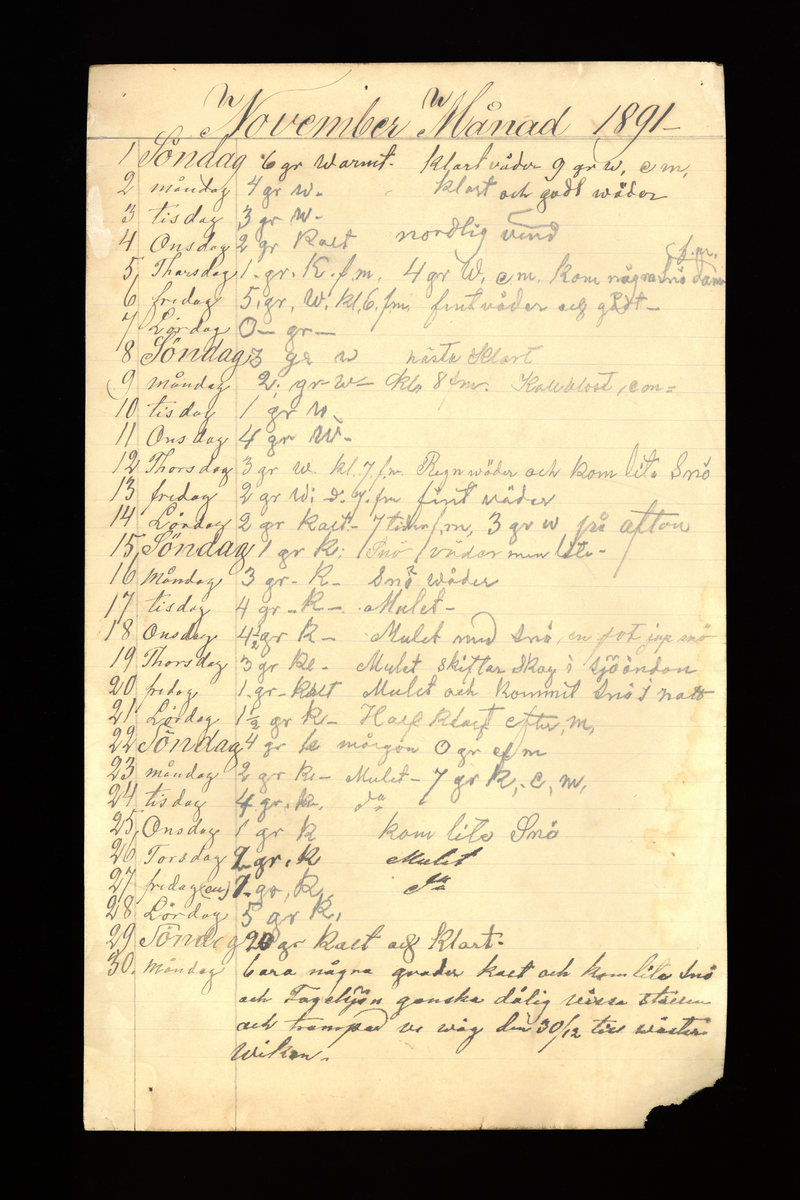 November Månad 1891-
1 Söndag 6 gr warmt- klart väder 9 gr w, e m,
2 måndag 4 gr w- klart och godt wäder
3 tisdag 3 gr w-
4 Onsdag 2 gr kalt nordlig vind
f.m.
5, Tharsdag 1- gr. K. f.m. 4 gr W. e m. kom några Snö
6 fredag 5, gr, W. kl, 6. fm, fint väder och gådt-
7 Lördag 0- gr-
8 Söndag 3 gr w nästa Klart
9 måndag 2; gr-w- kl, 8 fm.
10 tisdag 1 gr w
11 Onsdag 4 gr W-
12 Thorsdag 3 gr w. kl. 7. f.m. Regnwäder och kom lite Snö
13 fredag 2 gr W; 7. fm fint väder
14 Lördag 2 gr kalt- 7 f.m, 3 gr w på afton
15, Söndag 1 gr k; Snö väder men lite-
16 Måndag 3 gr- k- Snö wäder
17 tisdag 4 gr-k- Mulet-
18 Onsdag 4½ gr k- Mulet med Snö, en fot jup snö
19 Thorsdag 3 gr kl- Mulet skiftar Skog i Sjöändan
20 fredag 1-gr-kalt Mulet och kommit Snö i natt
21 Lördag 1½ gr k- Half klart efter, m,
22 Söndag 4 gr k mårgon 0 gr ef m
23 måndag 2 gr kl- Mulet- 7 gr k,- e, m,
24 tisdag 4 gr. k. do
25, Onsdag 1 gr k kom lite Snö
26 Torsdag 2 gr. k Mulet
27 fredag 7- gr, k, do
28 Lördag 5 gr k,
29 Söndag 20 gr kalt och klart-
30. måndag några grader kalt och kom lite Snö
och Fogelsjön ganska dålig vissa ställen
och trampad ve wäg den 30/12 till wäster
Wiken-